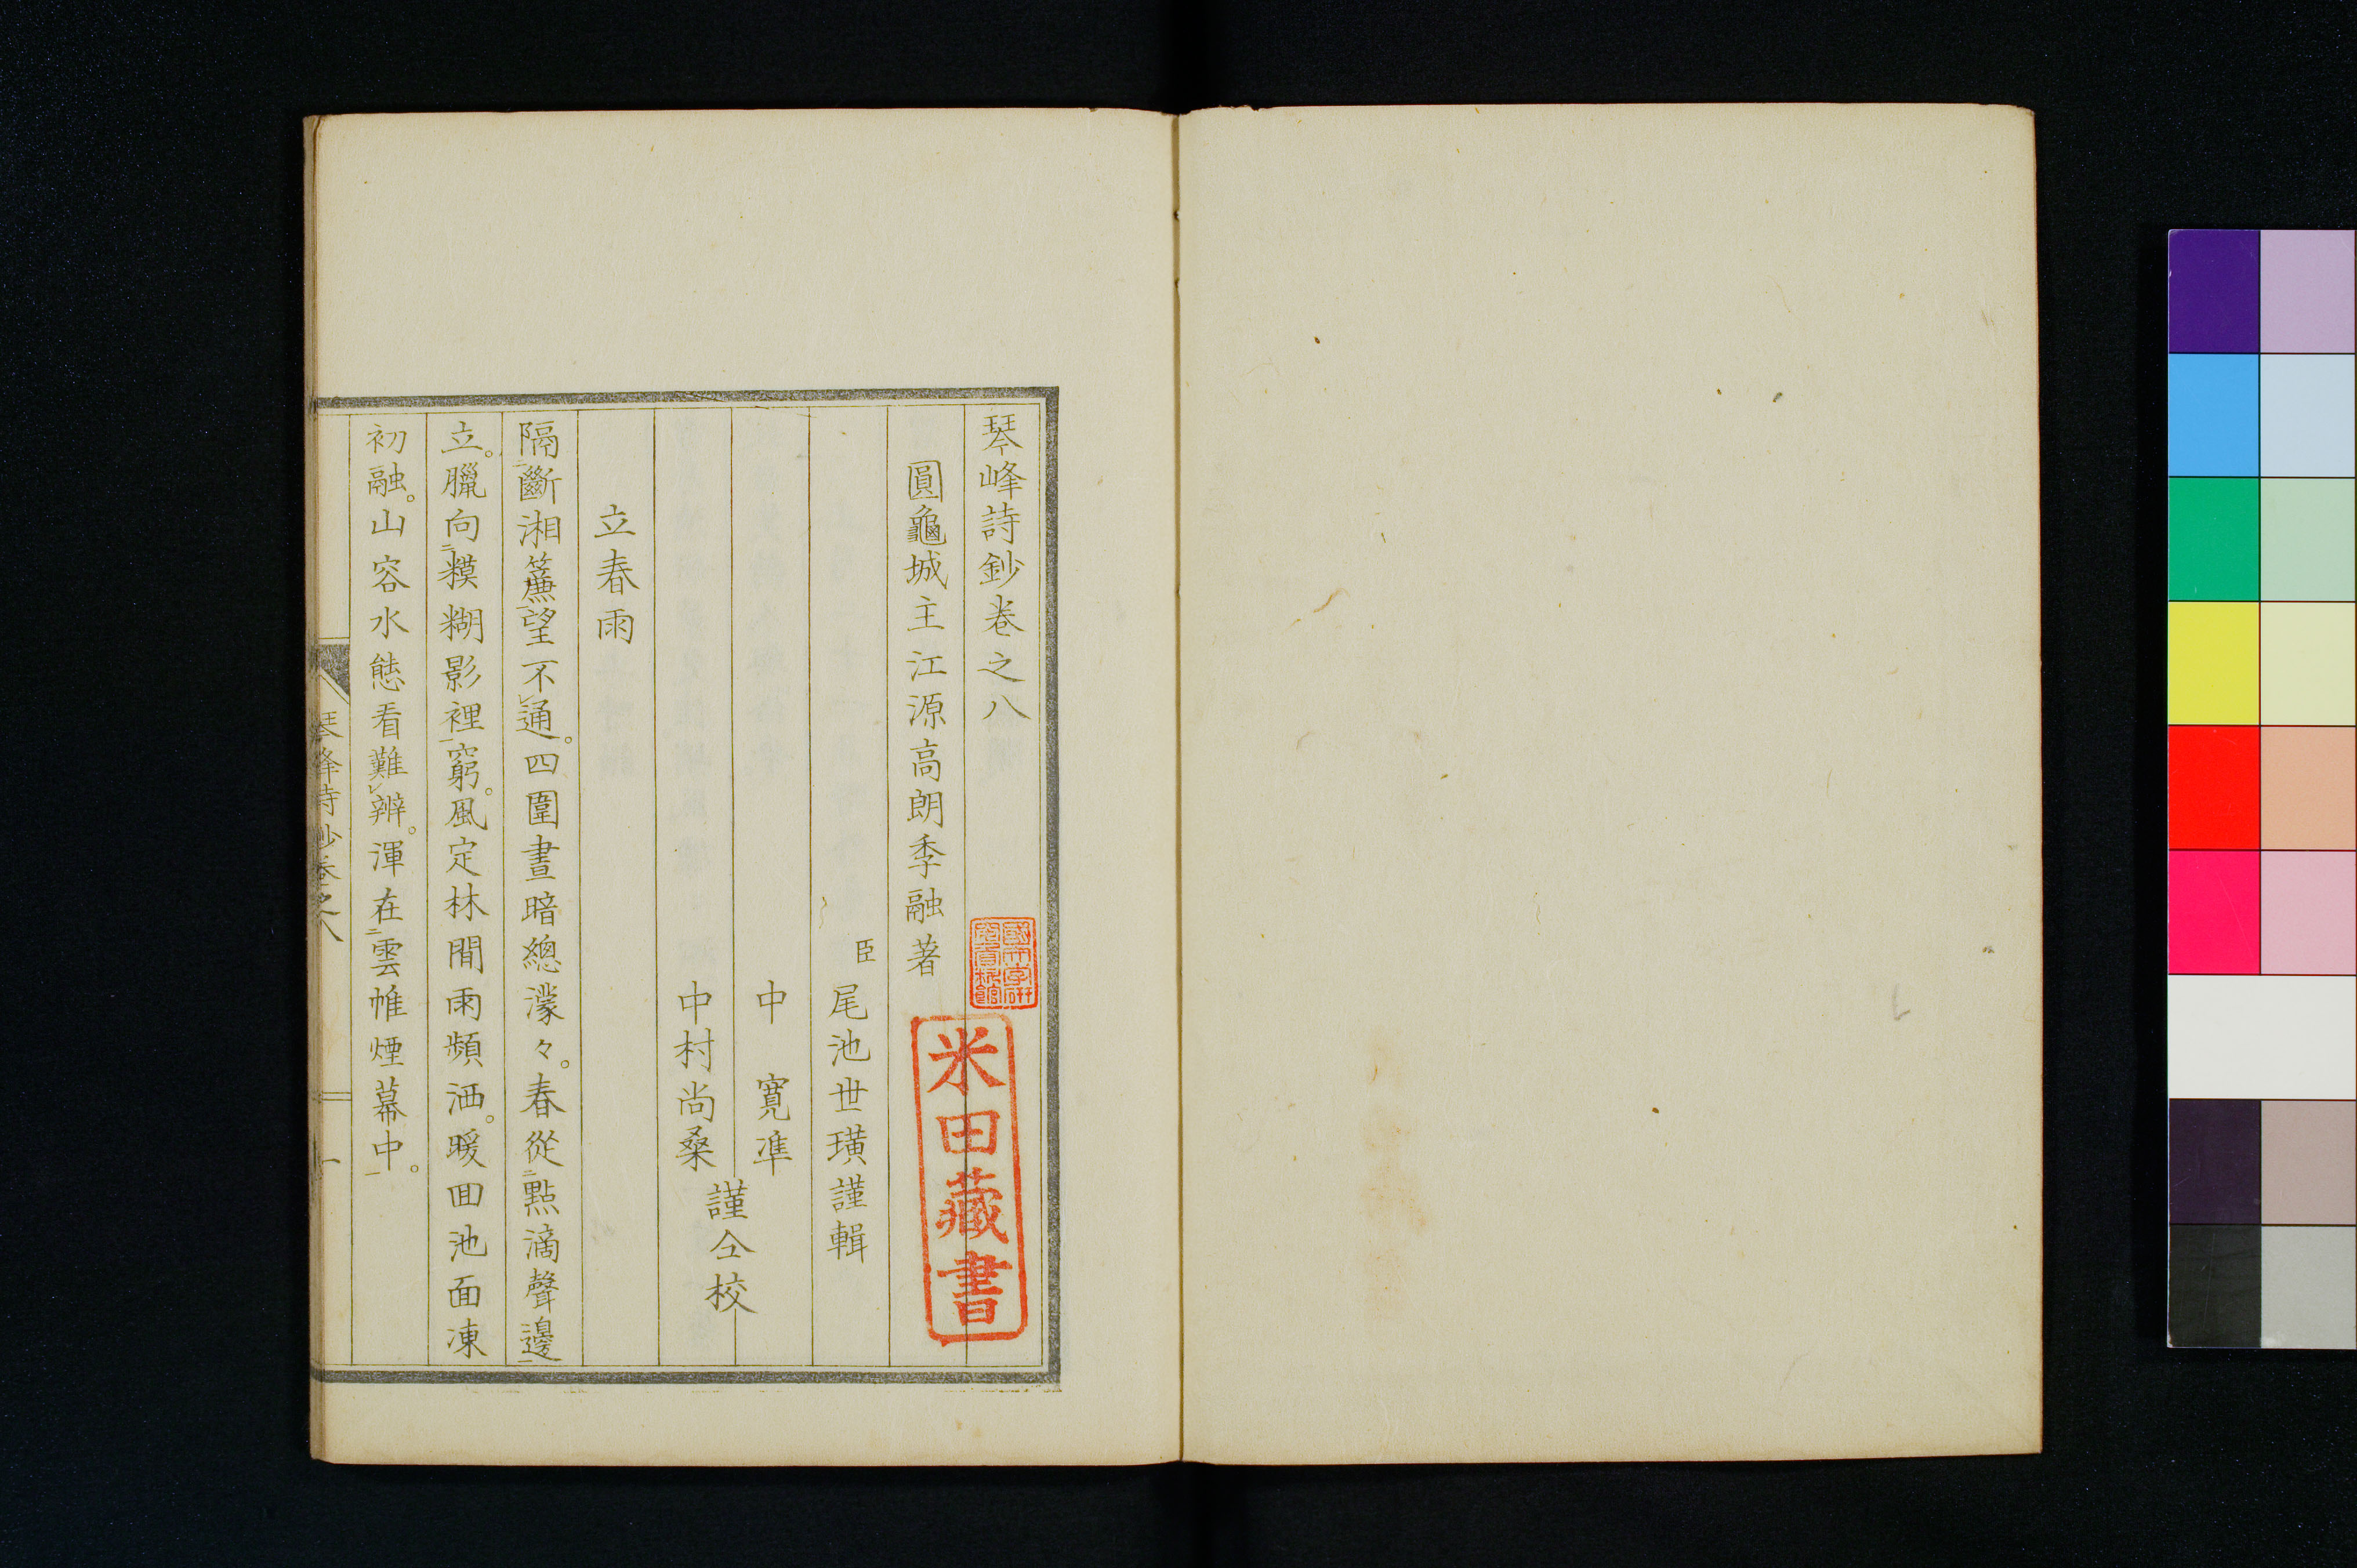 琴峰詩鈔卷之八
圓龜城主江源高朗季融著
臣 尾池世璜謹輯
中 寬準
中村尚桑
謹仝校
立春雨
隔二斷湘簾一望不レ通。四圍晝暗總濛々。春從二點滴聲邊一
立。臘向二糢糊影裡一窮。風定林間雨頻洒。暖回池面凍
初融。山容水態看難レ辨。渾在二雲帷煙幕中一。
琴峰詩鈔卷之八
一
米田藏書